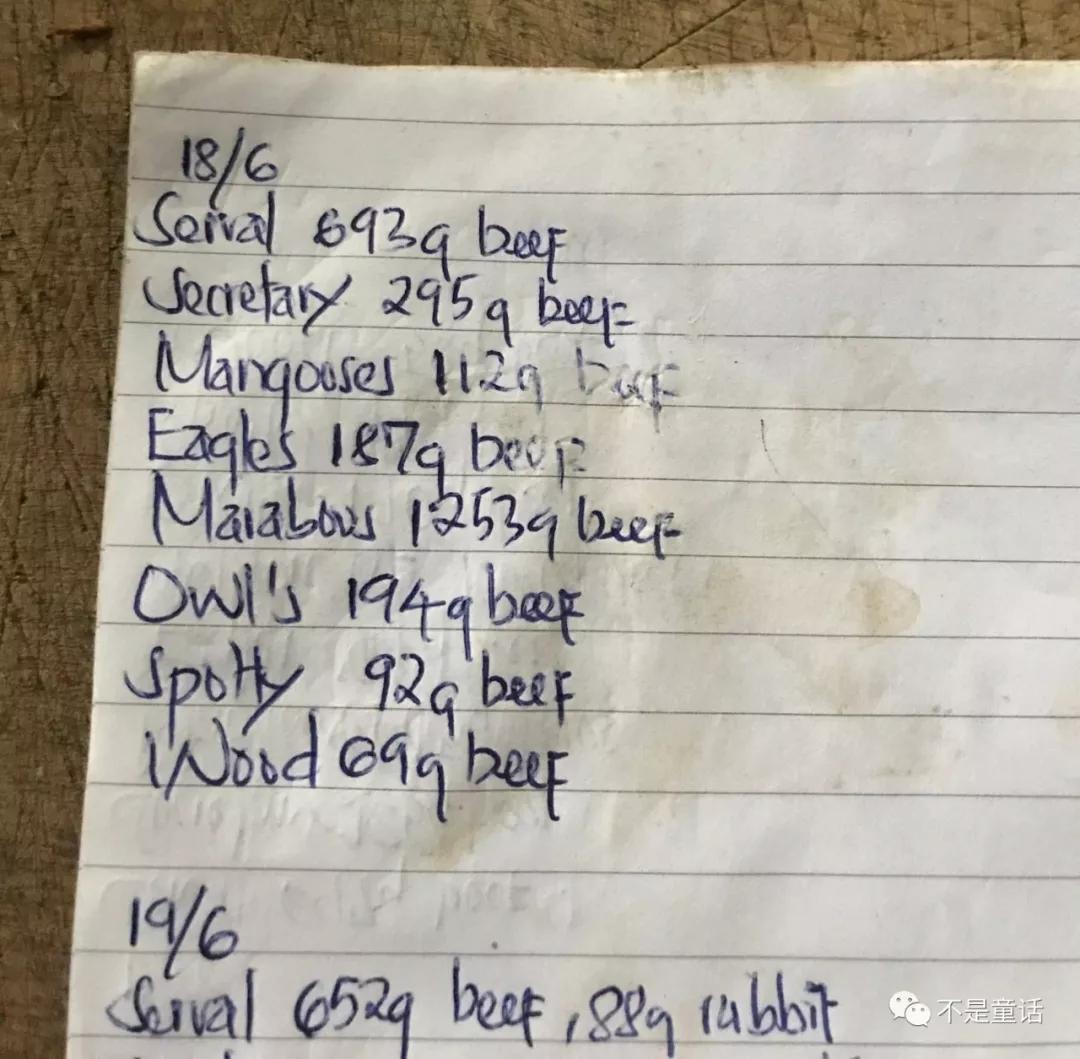 18/6
Serval 693g beef
Secretary 295g beef
Mangooses 112g beef
Eagles 187g beef
Marabous 1253g beef
Owl's 194g beef
Spotty 92g beef
Wood 69g beef
19/6
Serval 652g beef, 88g rabbit
不是童话